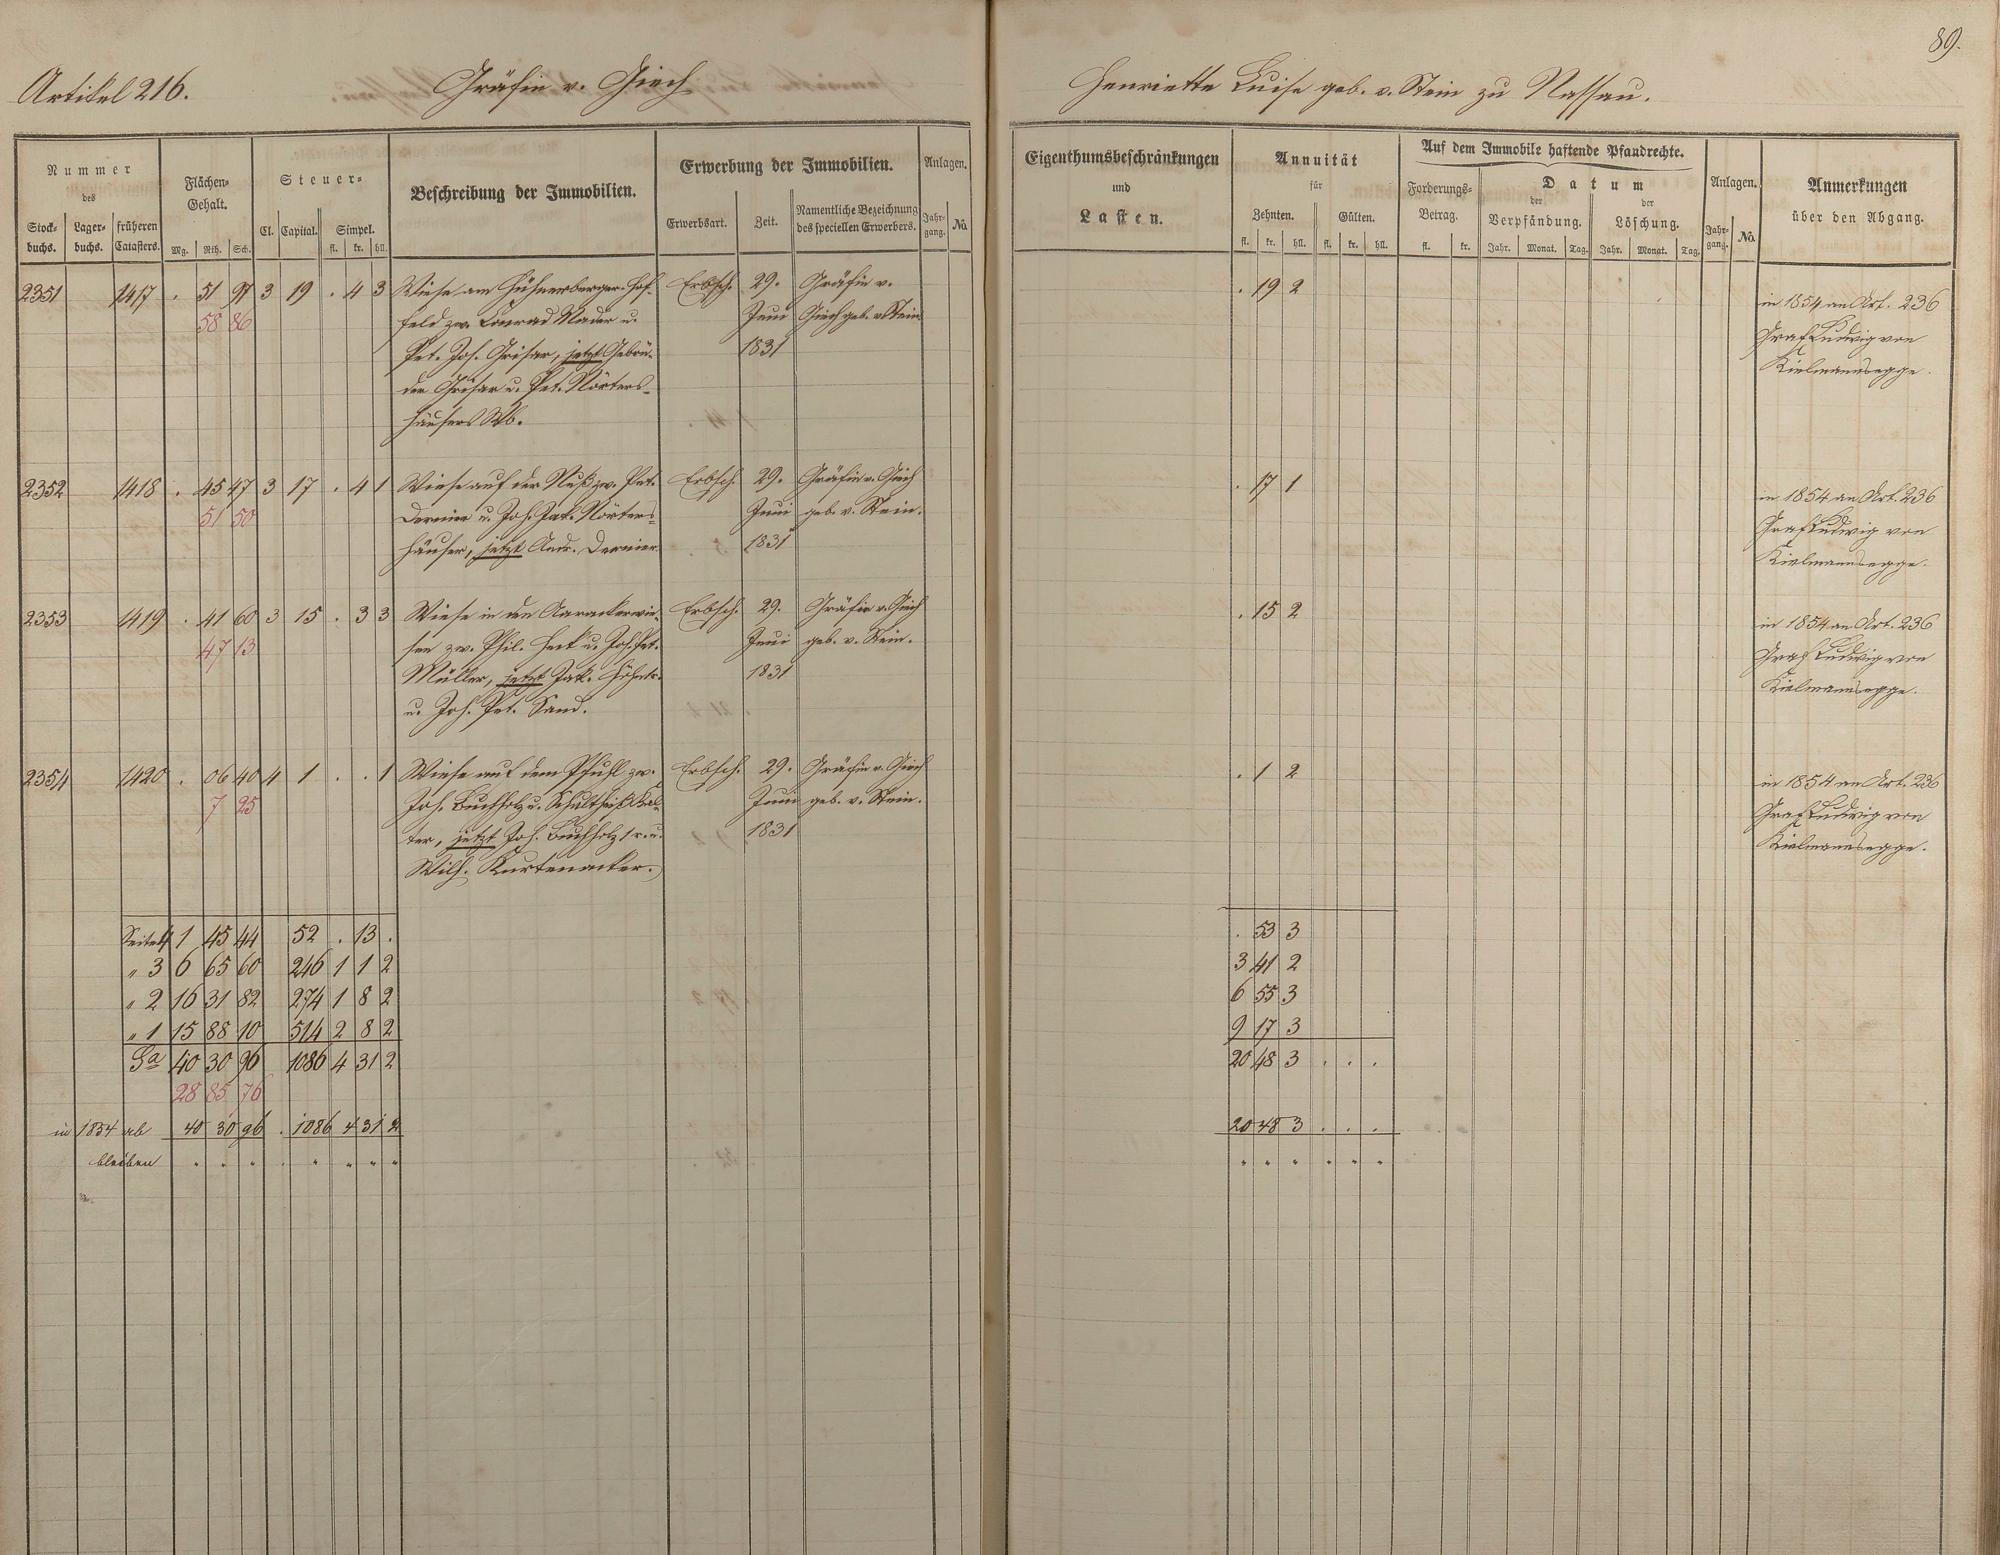 89.
Artikel 216. Gräfin v. Giech Henriette Luise geb. v. Stein zu Nassau.
Nummer
des
Stock-
buchs.
Lager-
buchs.
früheren
Catasters.
Flächen-
Gehalt.
Mg. Rth. Sch.
Steuer-
Cl. Capital. Simpel.
fl. kr. hll.
Beschreibung der Immobilien.
Erwerbung der Immobilien.
Erwerbsart. Zeit. Namentliche Bezeichnung
des speciellen Erwerbers.
Anlagen.
Jahr-
gang. No.
Eigenthumsbeschränkungen
und
Lasten.
Annuität
für
Zehnten. Gülten.
fl. kr. hll. fl. kr. hll.
Auf dem Immobile haftende Pfandrechte.
Forderungs-
Betrag.
fl. kr.
Datum
der der
Verpfändung. Löschung.
Jahr. Monat. Tag. Jahr. Monat. Tag.
Anlagen.
Jahr-
gang. No.
Anmerkungen
über den Abgang.
2351 1417 . 51 97 3 19 . 4 3 Wiese am Hühnerberger-Hof- Erbsch. 29. Gräfin v. . 19 2 in 1854 an Art. 236
58 86 feld zw. Conrad Mader u. Juni Giech geb. v. Stein Graf Ludwig von
Pet. Joh. Grisar, jetzt Gebrü- 1831 Kielmannsegge.
der Grisar u. Pet. Nörters-
häusers Wb.
2352 1418 . 45 47 3 17 . 4 1 Wiese auf der Nuß zw. Pet. Erbsch. 29. Gräfin v. Giech . 17 1 in 1854 an Art. 236
51 50 Dernier u. Joh. Jak. Nörters- Juni geb. v. Stein. Graf Ludwig von
häuser, jetzt Andr. Dernier. 1831 Kielmannsegge.
2353 1419 . 41 60 3 15 . 3 3 Wiese in den Aarackerwie- Erbsch. 29. Gräfin v. Giech . 15 2 in 1854 an Art. 236
47 13 sen zw. Phil. Heck u. Joh. Pet. Juni geb. v. Stein. Graf Ludwig von
Müller, jetzt Jak. 1831 Kielmannsegge.
u. Joh. Pet. Sand.
2354 1420 . 06 40 4 1 . . 1 Wiese auf dem Pfuhl zw. Erbsch. 29. Gräfin v. Giech . 1 2 in 1854 an Art. 236
7 25 Joh. Buchholz u. Schultheiß Juni geb. v. Stein. Graf Ludwig von
ter, jetzt Joh. Buchholz 1r u. 1831 Kielmannsegge.
Wilh. Kurtenacker.
Seite 4 1 45 44 52 . 13 . . 53 3
" 3 6 65 60 246 1 1 2 3 41 2
" 2 16 31 82 274 1 8 2 6 55 3
" 1 15 88 10 514 2 8 2 9 17 3
Sa 40 30 96 1086 4 31 2 20 48 3 . . .
28 85 76
in 1854 ab 40 30 96 . 1086 4 31 2 20 48 3 . . .
bleiben " " " . " " " " " " " " " "